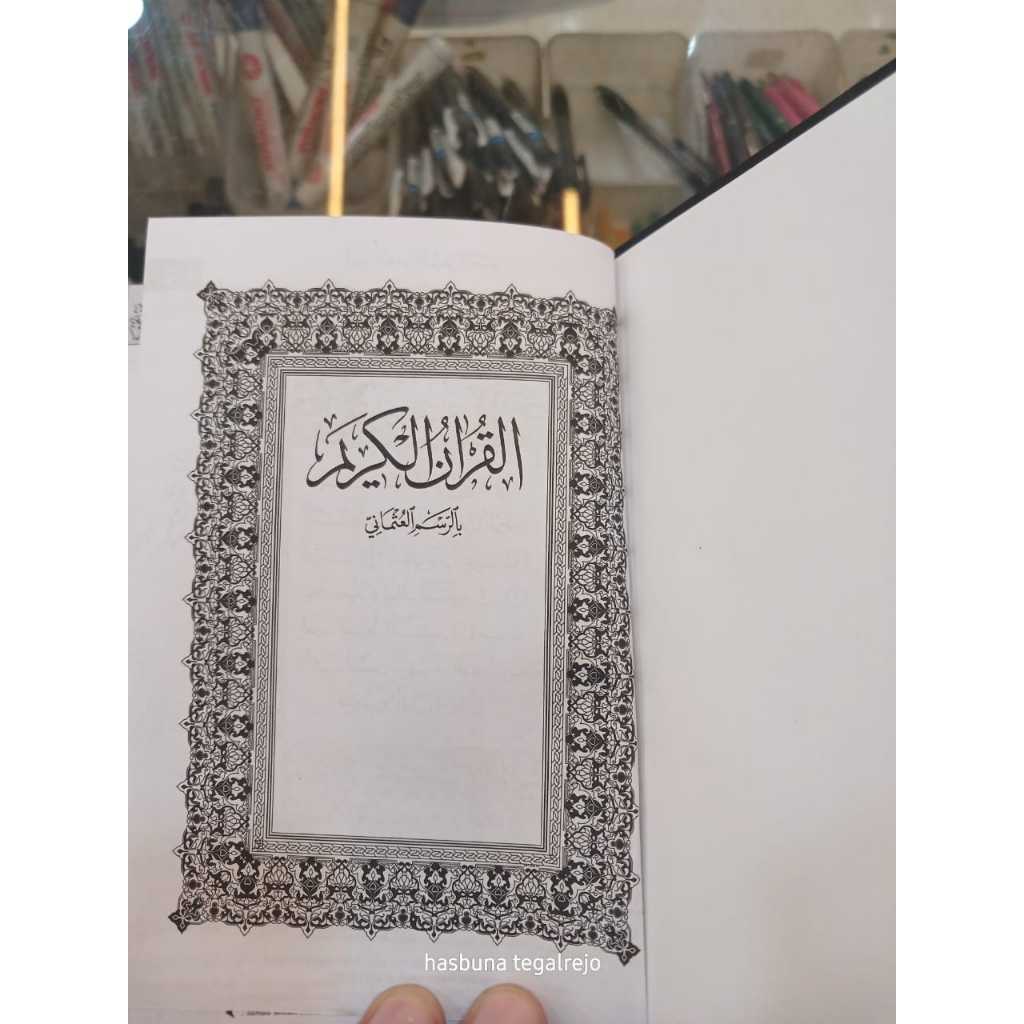 القُرْاٰنُ الْكَرِيْمَ
بِالرَّسْمِ الْعُثْمَانِيّ
hasbuna tegalrejo